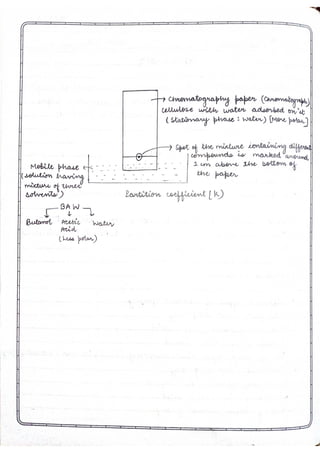 → Chromatography paper (Chromatograph)
cellulose with water adsorbed on it
(Stationary phase : water) [More polar]
→ Spot of the mixture containing different
compounds is marked around
1 cm above the bottom of
the paper
Mobile phase
(solution having
mixture of three
solvents)
Partition coefficient (k)
BAW
Butanol Acetic Water
Acid
(Less polar)